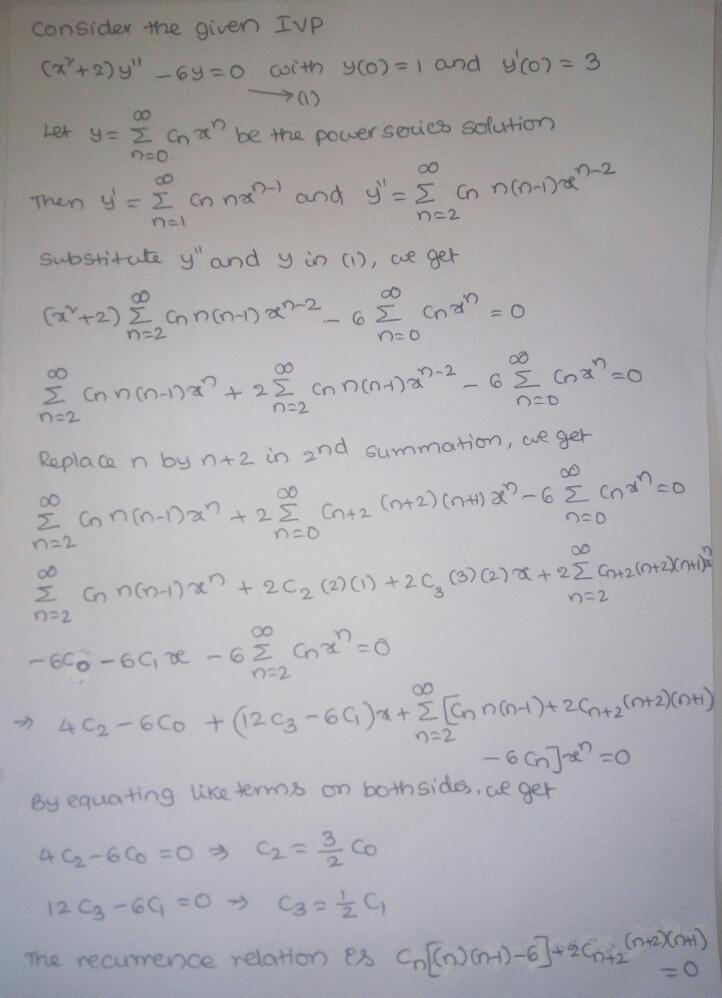 Consider the given IVP
(x²+2)y'' - 6y = 0 with y(0) = 1 and y'(0) = 3
→(1)
Let y = ∑_{n=0}^{∞} Cn xⁿ be the power series solution
Then y' = ∑_{n=1}^{∞} Cn n x^{n-1} and y'' = ∑_{n=2}^{∞} Cn n(n-1) x^{n-2}
Substitute y'' and y in (1), we get
(x²+2) ∑_{n=2}^{∞} Cn n(n-1) x^{n-2} - 6 ∑_{n=0}^{∞} Cn xⁿ = 0
∑_{n=2}^{∞} Cn n(n-1) xⁿ + 2 ∑_{n=2}^{∞} Cn n(n-1) x^{n-2} - 6 ∑_{n=0}^{∞} Cn xⁿ = 0
Replace n by n+2 in 2nd summation, we get
∑_{n=2}^{∞} Cn n(n-1) xⁿ + 2 ∑_{n=0}^{∞} C_{n+2} (n+2)(n+1) xⁿ - 6 ∑_{n=0}^{∞} Cn xⁿ = 0
∑_{n=2}^{∞} Cn n(n-1) xⁿ + 2C₂ (2)(1) + 2C₃ (3)(2) x + 2 ∑_{n=2}^{∞} C_{n+2} (n+2)(n+1) xⁿ
- 6C₀ - 6C₁ x - 6 ∑_{n=2}^{∞} Cn xⁿ = 0
⇒ 4C₂ - 6C₀ + (12C₃ - 6C₁)x + ∑_{n=2}^{∞} [Cn n(n-1) + 2C_{n+2} (n+2)(n+1)
- 6Cn] xⁿ = 0
By equating like terms on both sides, we get
4C₂ - 6C₀ = 0 ⇒ C₂ = 3/2 C₀
12C₃ - 6C₁ = 0 ⇒ C₃ = 1/2 C₁
The recurrence relation is Cn[(n)(n-1) - 6] + 2C_{n+2} (n+2)(n+1)
= 0